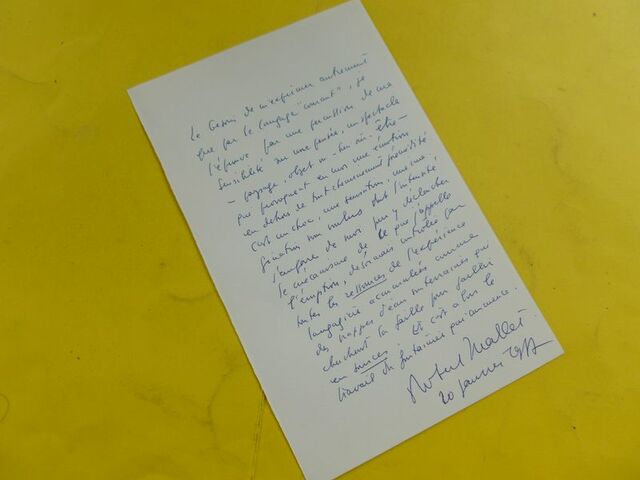 Le besoin de m'exprimer autrement
que par le langage "courant", je
l'éprouve par une percussion de ma
sensibilité sur une pensée, un spectacle
— paysage, objet ou être —
qui provoquent en moi une émotion
en dehors de tout cheminement prémédité
C'est un choc, une sensation, une ima-
gination non voulus dont l'intensité
s'empare de moi pour y déclencher
le mécanisme de ce que j'appelle
l'éruption, désormais contrôlée par
toutes les ressources de l'expérience
langagière accumulées comme
des nappes d'eau souterraines qui
cherchent la faille pour jaillir
en sources. Et c'est alors le
travail du fontainier qui commence.
Robert Mallet
20 janvier